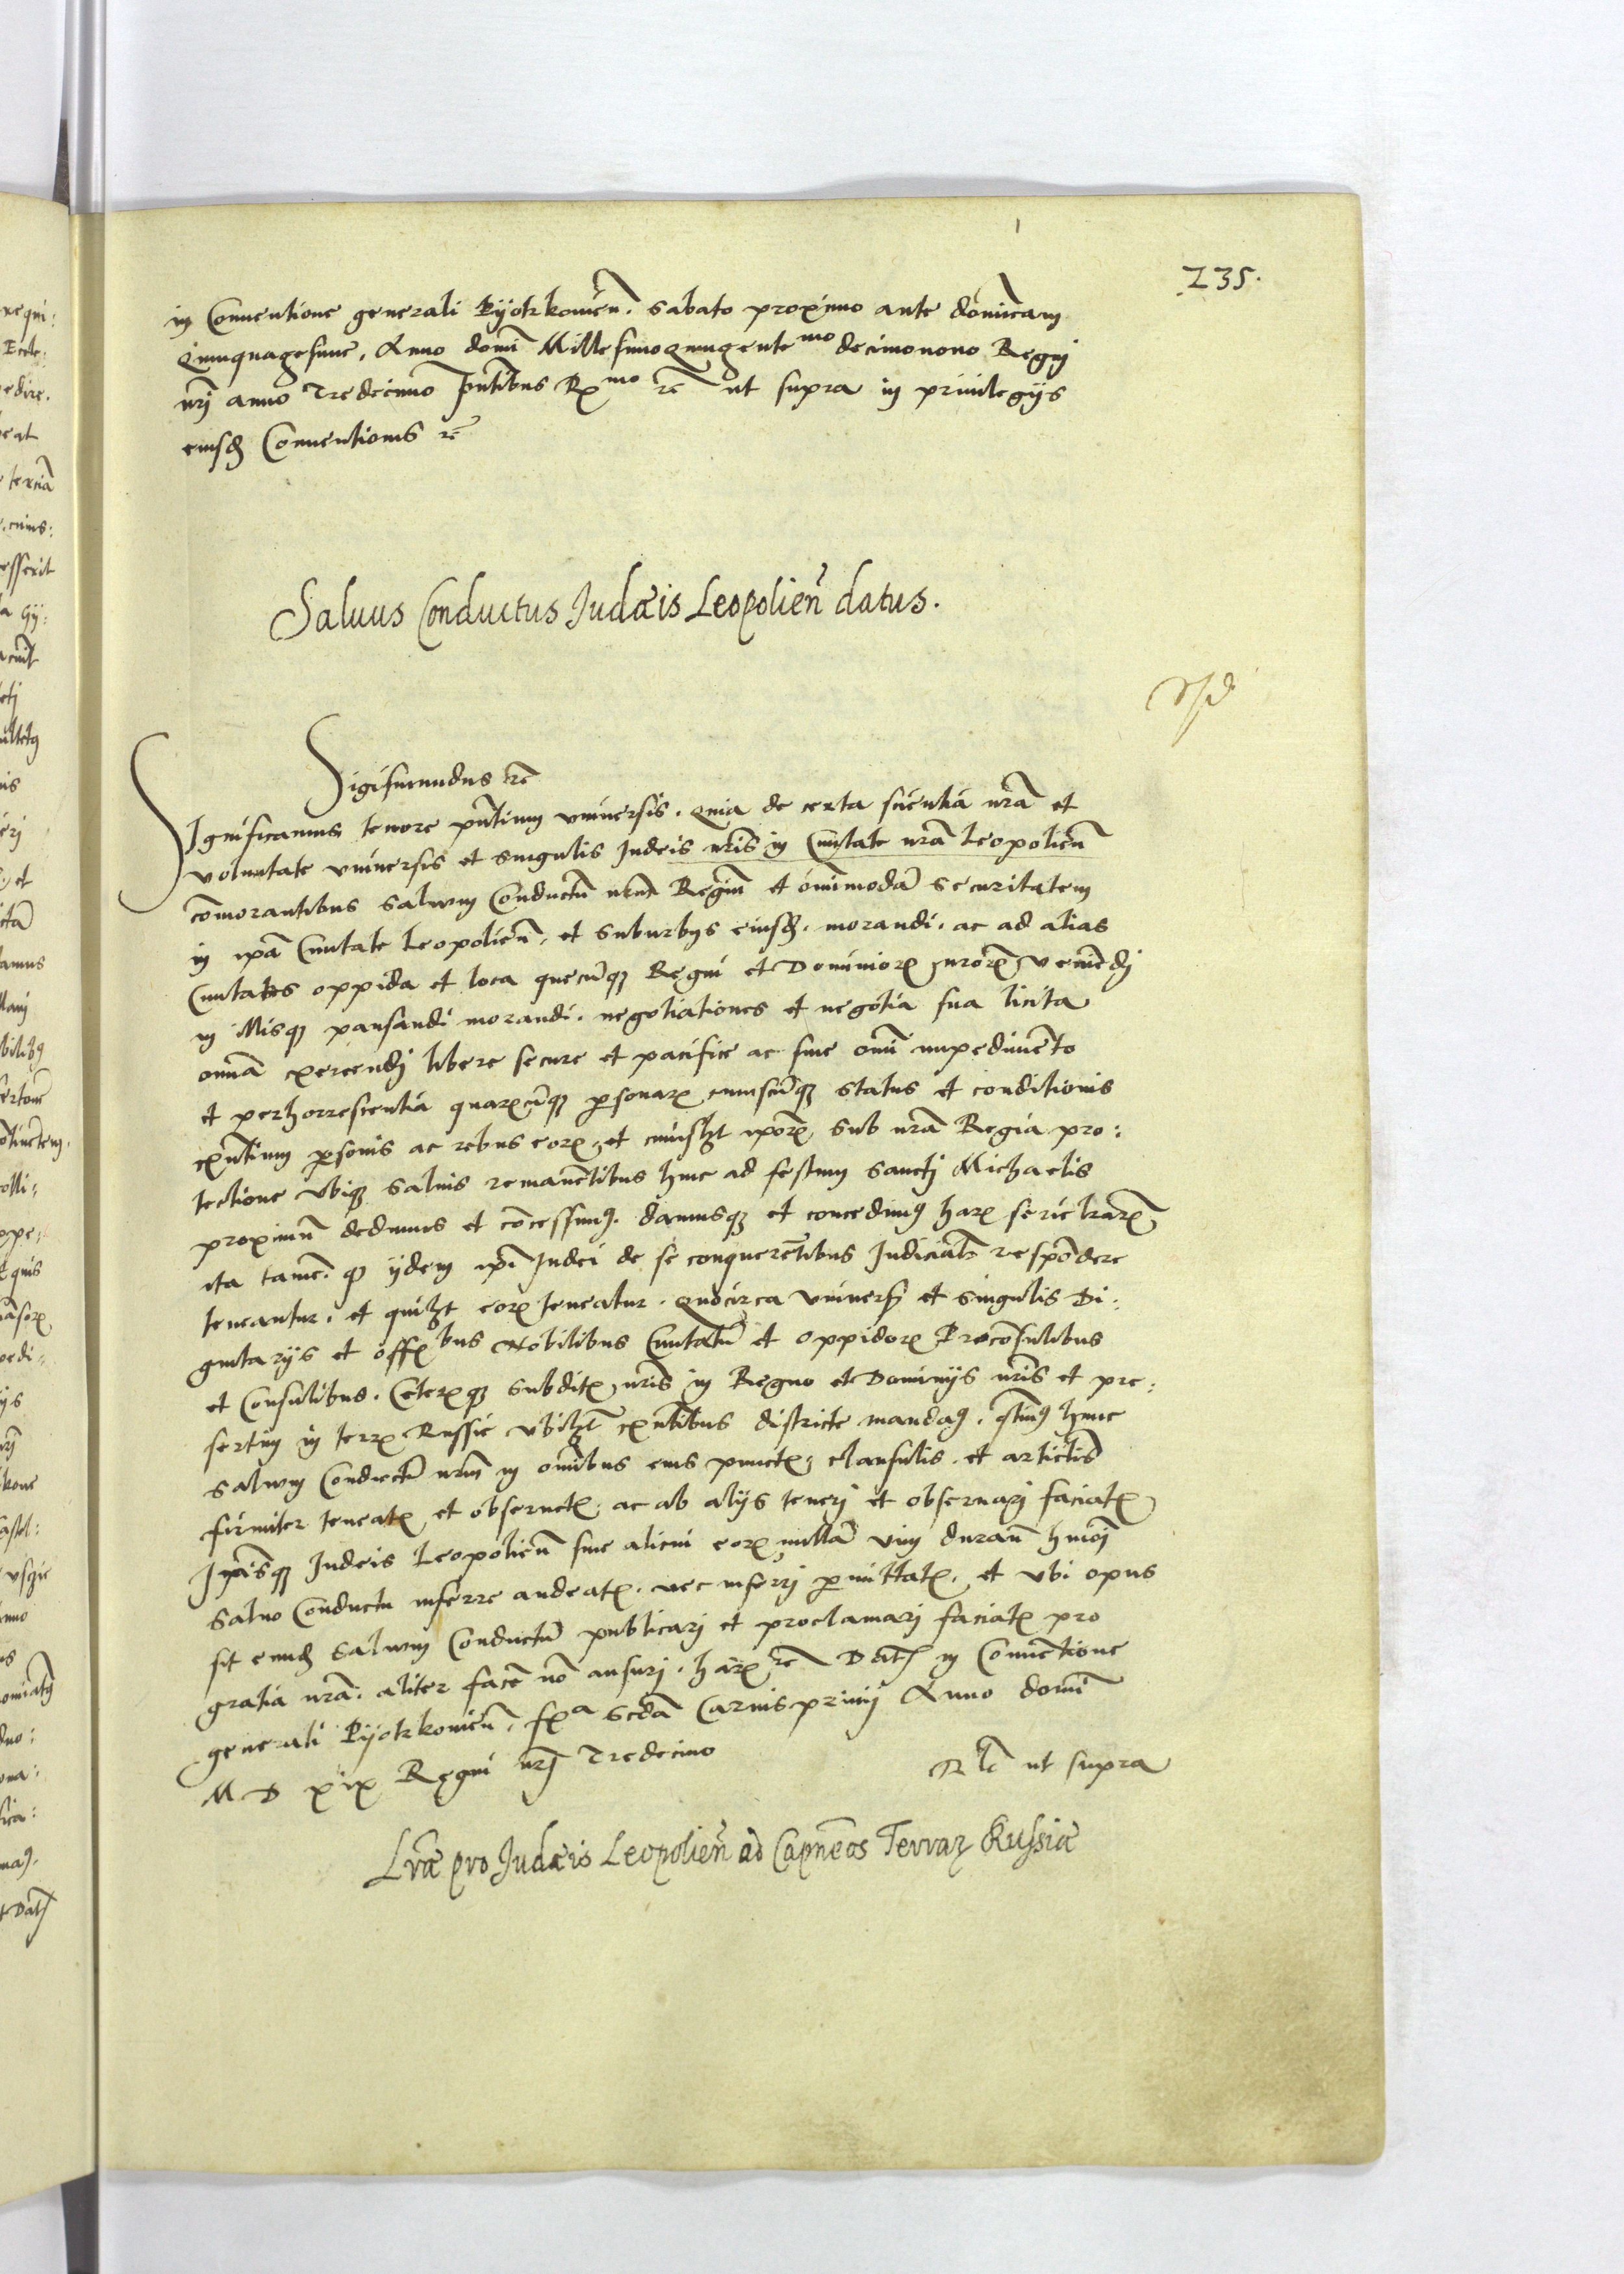 235.
in Conuentione generali Pyotrkouień. Sabato proximo ante dominicam
Quinquagesime, Anno domī Millesimoquingente^mo decimonono Regnj
nrj anno Tredecimo pn̄tibus R^mo rē ut supra in priuilegijs
eiusd Conuentionis rē
Saluus Conductus Judæis Leopolień datus.
Sigismundus rē
Significamus tenore pn̄tium vniuersis. quia de certa scientia nrā et
voluntate vniuersis et singulis Judeis nrīs in Ciuitate nrā Leopolień
cōmorantibus saluum Conductū nrūm Regiū et ōnimodā securitatem
in ipā Ciuitate Leopolień, et suburbys eiusd. morandi. ac ad alias
Ciuitates oppida et loca quecūq Regni et Dominiorꝝ nrorꝝ veniēdj
in illisq pausandi morandi. negotiationes et negotia sua licita
omnia exercendj libere secure et pacifice ac sine omī impedimēto
et perhorrescentia quarūcūq personarꝝ cuiuscūq status et conditionis
exn̄tium personis ac rebus eorꝝ, et cuiuslꝫt iporꝝ, sub nrā Regia pro:
tectione vbiq saluis remanētibus hinc ad festum Sanctj Michaelis
proximū dedimus et cōcessimꝰ. damusq et concedimꝰ harꝝ serie lrarꝝ,
ita tamē. ꝙ ijdem ipī Judei de se conquerētibus Judicialr respōdere
teneantur. et quilꝫt eorꝝ teneatur. Quocirca vniuersis et singulis Di:
gnitarijs et offībus Nobilibus Ciuitatū et oppidorꝝ Procōsulibus
et Consulibus. Ceterisq subditis nrīs in Regno et Dominijs nrīs et pre:
sertim in terris Russie vbilꝫt exn̄tibus districte mandaꝰ. qtinꝰ hunc
saluum Conductū nrūm in omībus eius punctis, clausulis. et articlīs
firmiter teneatis et obseruetis. ac ab alijs tenerj et obseruarj faciatis
Ipīsq Judeis Leopolień siue alicui eorꝝ nullā vim durañ hmōi
saluo Conductu inferre audeatis. nec inferrj permittatis. et vbi opus
sit eund saluum Conductū publicarj et proclamarj faciatis pro
gratia nrā. aliter facē nō ausurj. harꝝ rē Datꝭ in Conuētione
generali Pyotrkouień. fr^a scdā Carnispriuij Anno domī
M D xix Regni nrj Tredecimo
Rlō ut supra
Lræ pro Judæis Leopolień ad Capneos Terrarꝝ Russiæ